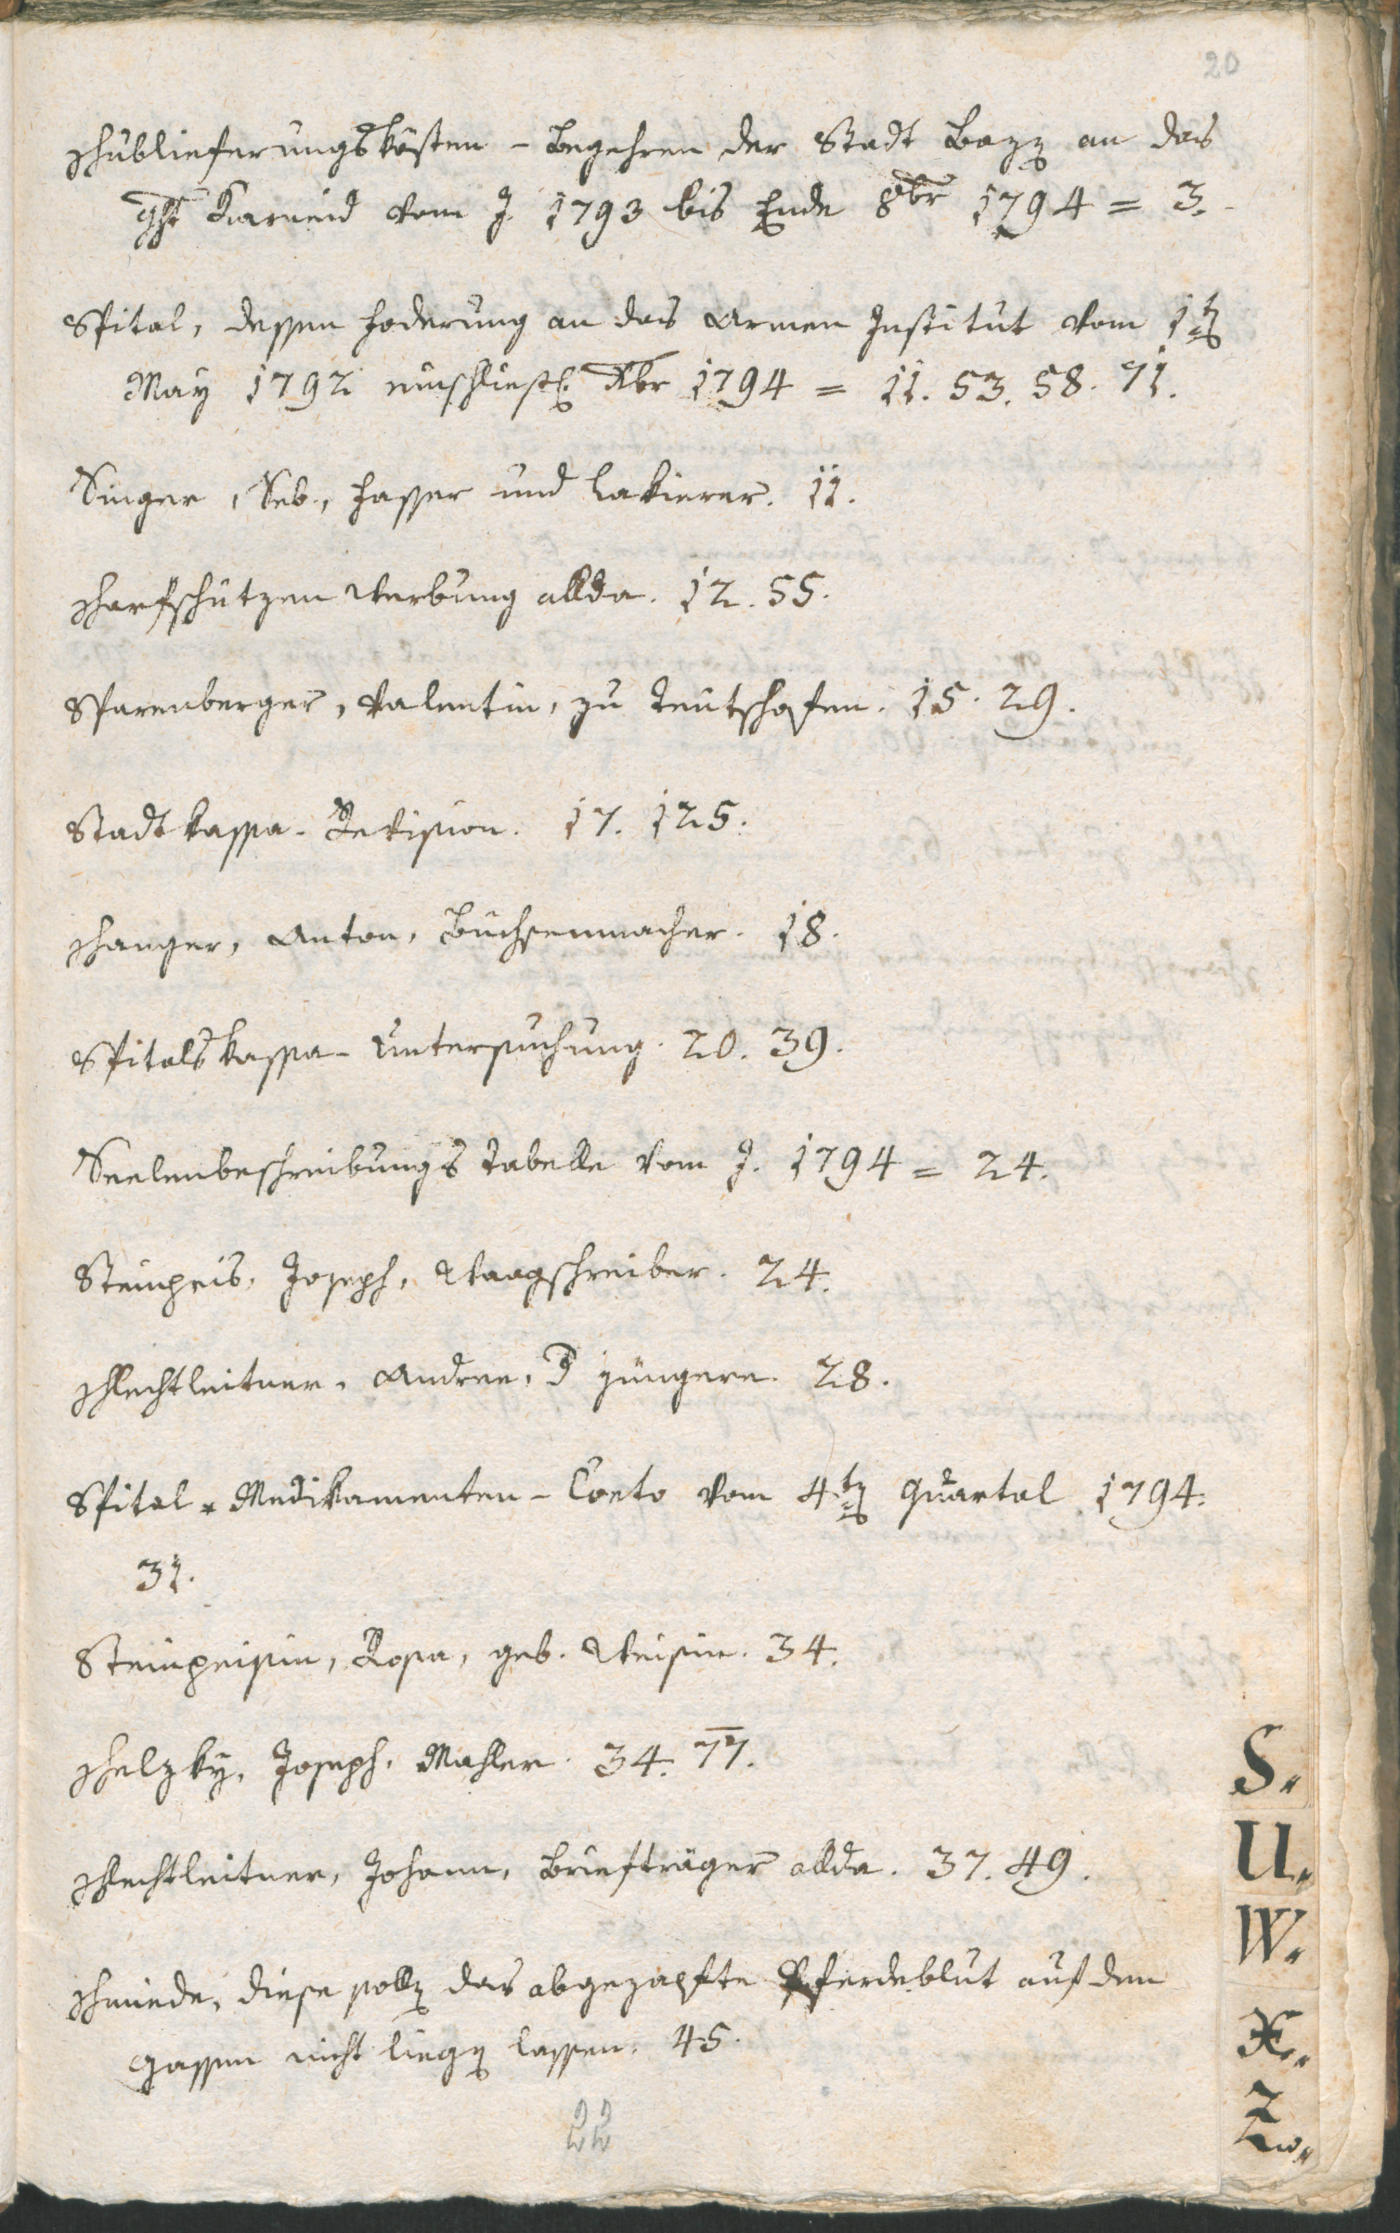 20
Schüblieferungskösten - Begehren der Stadt Boz̄ an das
Ght Karneid vom J. 1793 bis Ende 8br 1794 = 3.
Spital, dessen Foderung an das Armen Institut vom 1tn
May 1792 einschliesl. Xbr 1794 = 11. 53. 58. 71.
Singer, Seb., Fasser und Lakierer. 11.
Scharfschützen Werbung allda. 12. 55.
Sparenberger, Valentin, zu Teutschofen. 15. 29.
Stadtkassa-Revision. 17. 125.
Schanger, Anton, Büchsenmacher. 18.
Spitalskassa-Untersuchung. 20. 39.
Seelenbeschreibungs Tabelle vom J. 1794 = 24.
Steinpeis, Joseph, Waagschreiber. 24.
Schlechtleitner, Andree, d jüngere. 28.
Spital-Medikamenten-Conto vom 4tn Quartal 1794.
31.
Steinpeisin, Rosa, geb. Weisin. 34.
Schelzky, Joseph, Mahler. 34. 77.
Schlechtleitner, Johann, Briefträger allda. 37. 49.
Schmiede, diese solln das abgezapfte Pferdeblut auf den
Gassen nicht liegn lassen. 45.
22
S.
U.
W.
X.
Z.